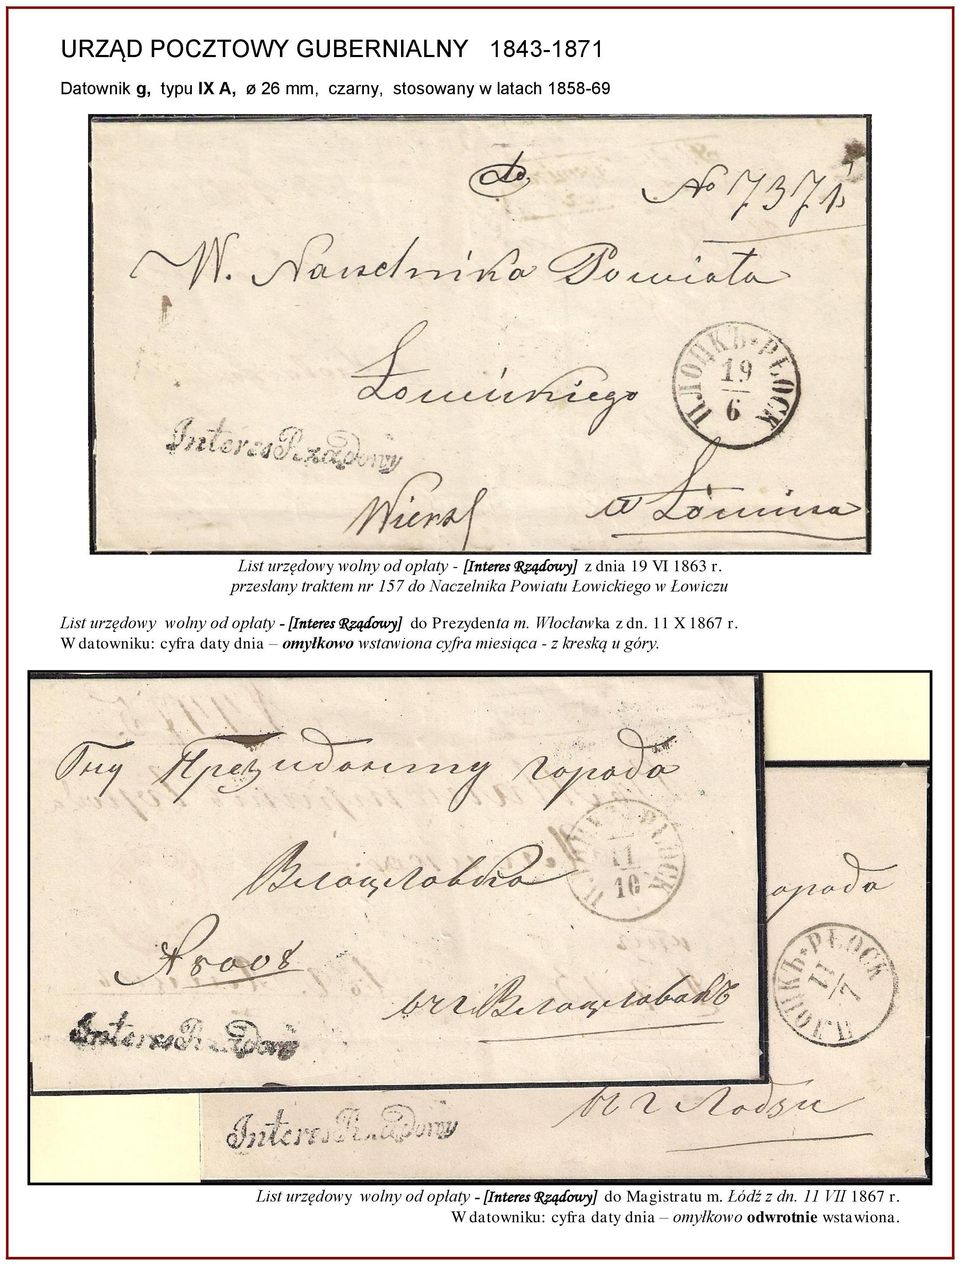 URZĄD POCZTOWY GUBERNIALNY 1843-1871
Datownik g, typu IX A, ø 26 mm, czarny, stosowany w latach 1858-69
Do
No 7371
W. Naczelnika Powiatu
Łowickiego
ПЛОЦКЪ * PŁOCK
19
6
Interes Rządowy
w Łowiczu
List urzędowy wolny od opłaty - [Interes Rządowy] z dnia 19 VI 1863 r.
przesłany traktem nr 157 do Naczelnika Powiatu Łowickiego w Łowiczu
List urzędowy wolny od opłaty - [Interes Rządowy] do Prezydenta m. Włocławka z dn. 11 X 1867 r.
W datowniku: cyfra daty dnia – omyłkowo wstawiona cyfra miesiąca - z kreską u góry.
Гну Президенту города
Влоцлавка
ПЛОЦКЪ * PŁOCK
11
10
№ 8008
Interes Rządowy
города
ПЛОЦКЪ * PŁOCK
11
7
Interes Rządowy
въ г Лодзи
List urzędowy wolny od opłaty - [Interes Rządowy] do Magistratu m. Łódź z dn. 11 VII 1867 r.
W datowniku: cyfra daty dnia – omyłkowo odwrotnie wstawiona.